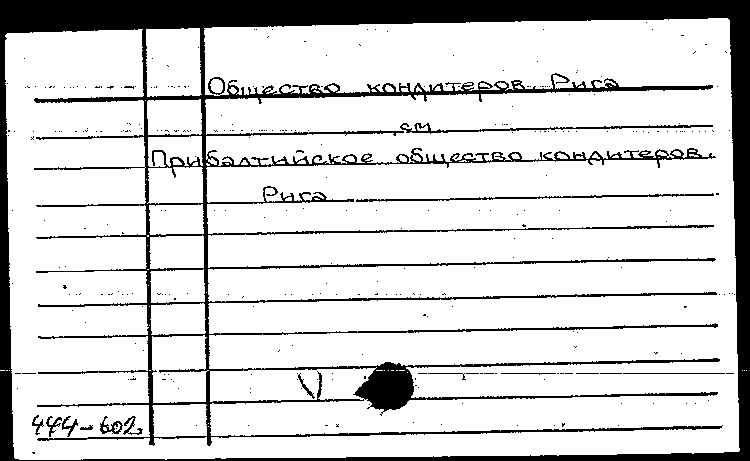 Общество кондитеров Рига
см
Прибалтийское общество кондитеров.
Рига
444-602.